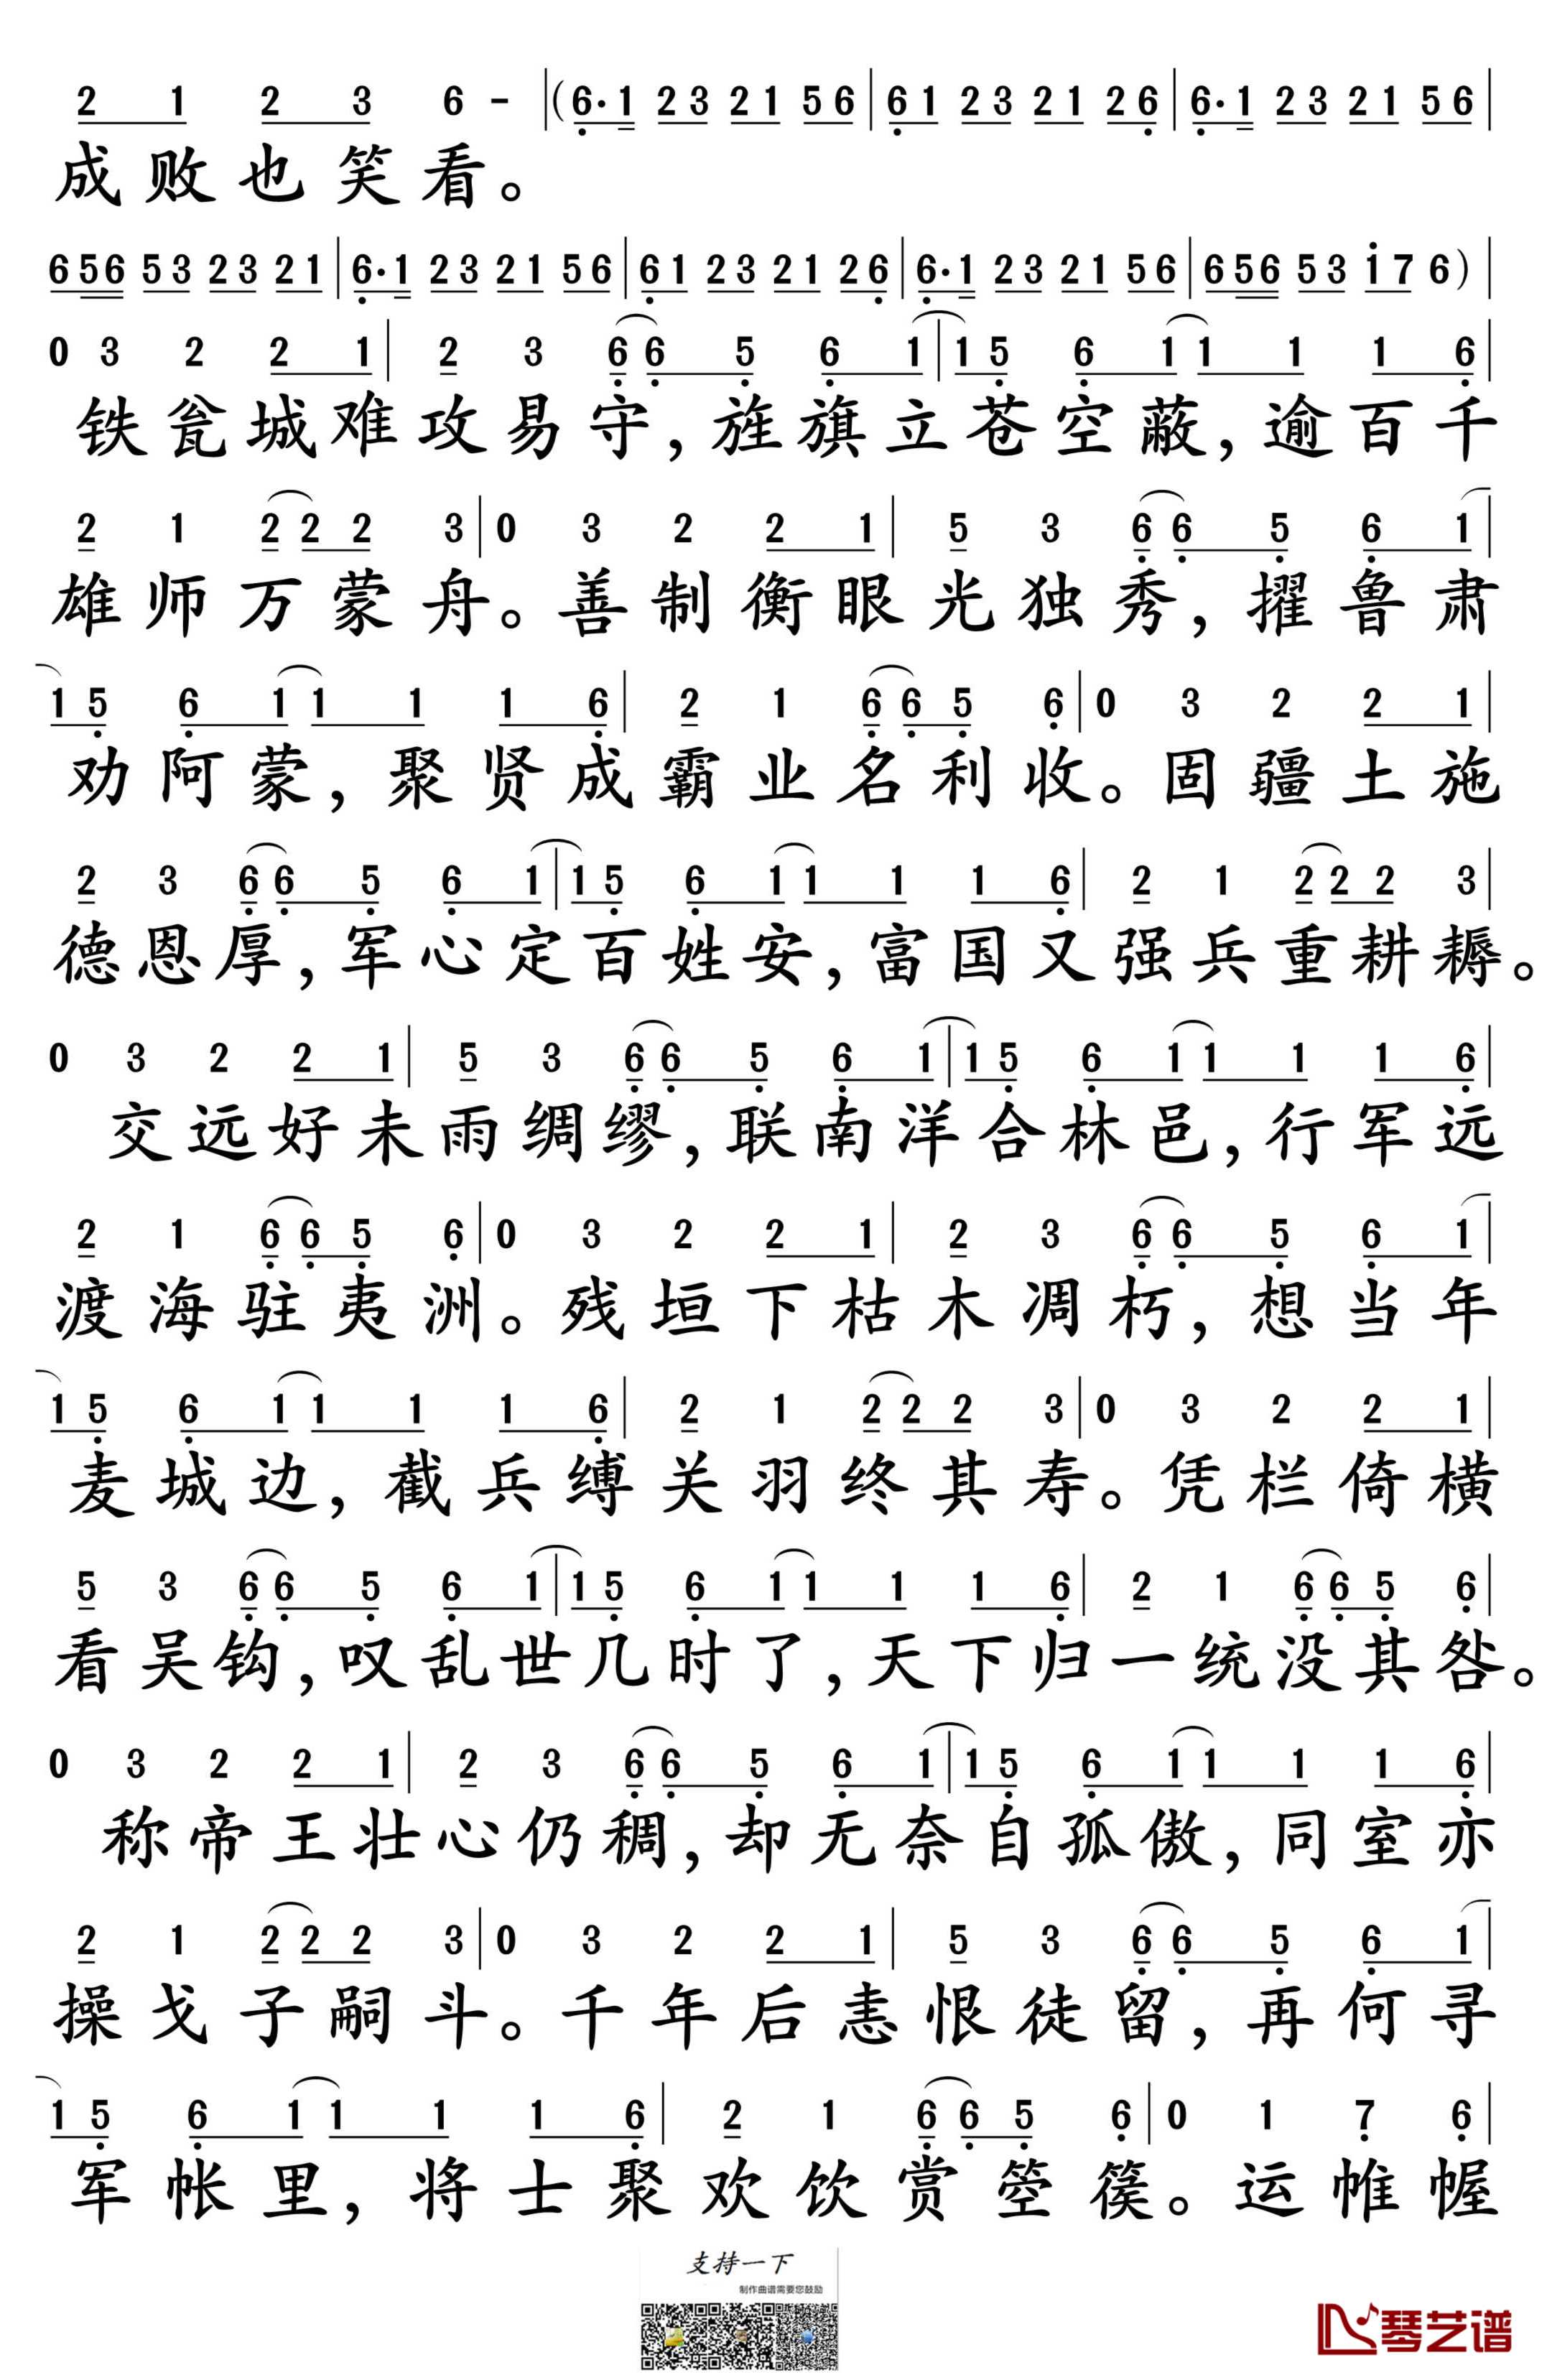 2 1 2 3 6 - |(6·1 23 21 56|61 23 21 26|6·1 23 21 56|
成败也笑看。
656 53 23 21|6·1 23 21 56|61 23 21 26|6·1 23 21 56|656 53 i7 6)|
0 3 2 2 1| 2 3 66 5 6 1|15 6 11 1 1 6|
铁瓮城难攻易守,旌旗立苍空蔽,逾百千
2 1 22 2 3|0 3 2 2 1| 5 3 66 5 6 1|
雄师万蒙舟。善制衡眼光独秀,擢鲁肃
15 6 11 1 1 6| 2 1 66 5 6|0 3 2 2 1|
劝阿蒙,聚贤成霸业名利收。固疆土施
2 3 66 5 6 1|15 6 11 1 1 6| 2 1 22 2 3|
德恩厚,军心定百姓安,富国又强兵重耕耨。
0 3 2 2 1| 5 3 66 5 6 1|15 6 11 1 1 6|
交远好未雨绸缪,联南洋合林邑,行军远
2 1 66 5 6|0 3 2 2 1| 2 3 66 5 6 1|
渡海驻夷洲。残垣下枯木凋朽,想当年
15 6 11 1 1 6| 2 1 22 2 3|0 3 2 2 1|
麦城边,截兵缚关羽终其寿。凭栏倚横
5 3 66 5 6 1|15 6 11 1 1 6| 2 1 66 5 6|
看吴钩,叹乱世几时了,天下归一统没其咎。
0 3 2 2 1| 2 3 66 5 6 1|15 6 11 1 1 6|
称帝王壮心仍稠,却无奈自孤傲,同室亦
2 1 22 2 3|0 3 2 2 1| 5 3 66 5 6 1|
操戈子嗣斗。千年后恚恨徒留,再何寻
15 6 11 1 1 6| 2 1 66 5 6|0 1 7 6|
军帐里,将士聚欢饮赏箜篌。运帷幄
支持一下
制作曲谱需要您鼓励
琴艺谱